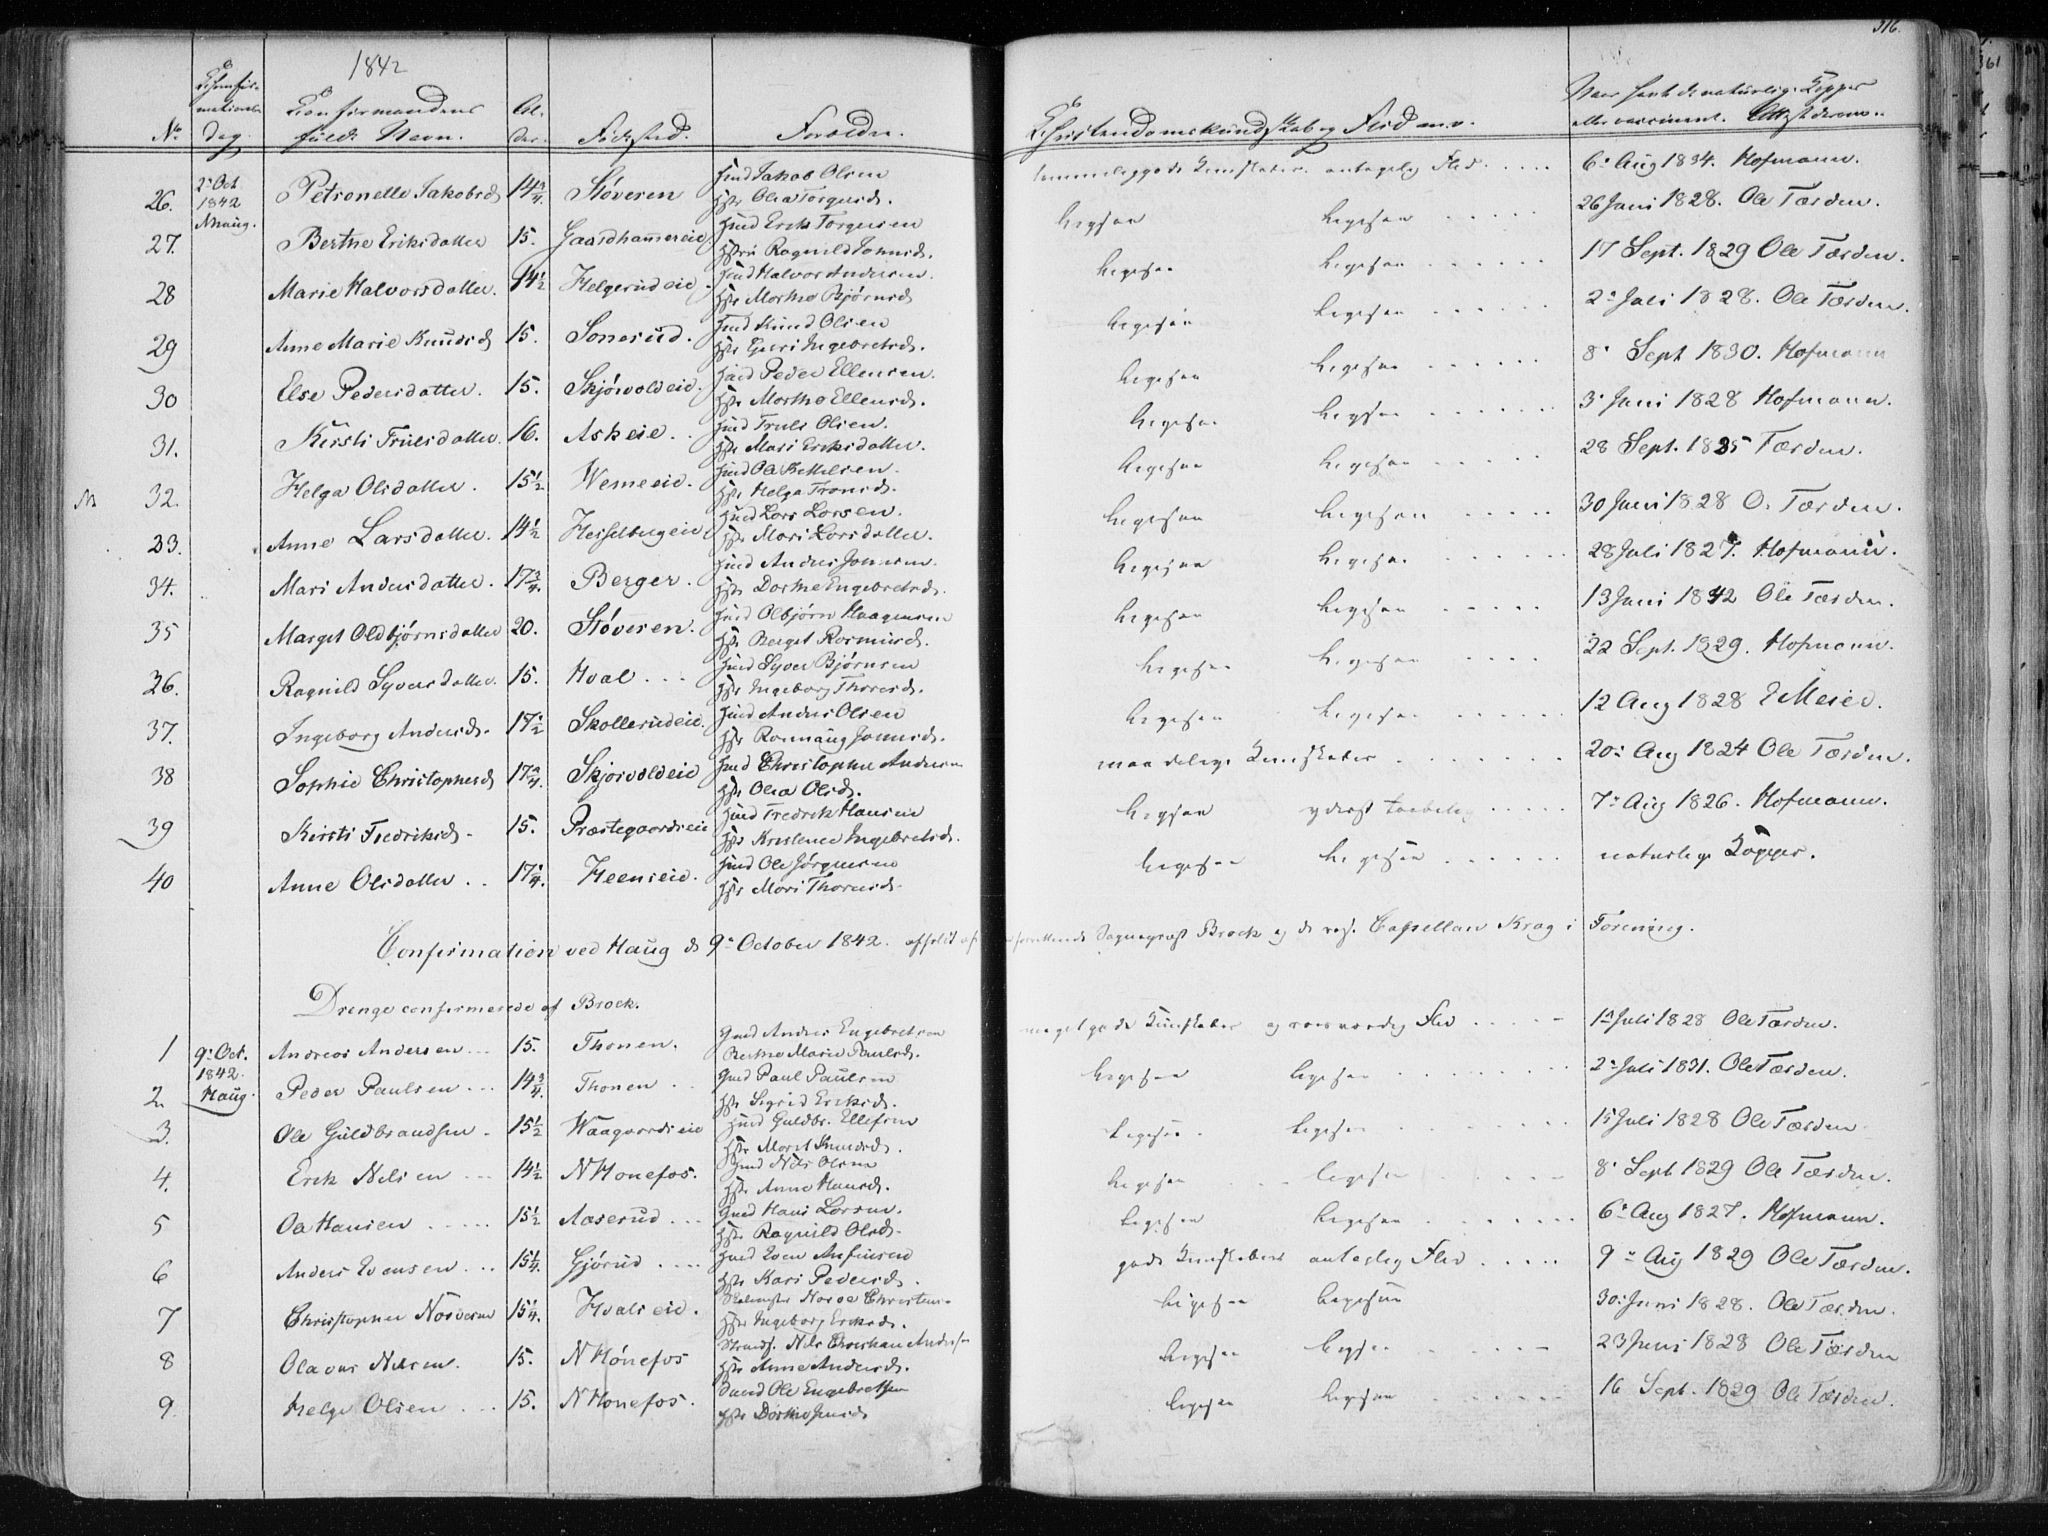 316.
1842
Nº Confirmations Dag. Confirmandens fulde Navn. Alder. Fødested. Forældre. Christendomskundskab og Flid m.v. Naar havt de naturlige Kopper eller vaccineret. Attest derom.
26. 2: Oct 1842 Nhaug. Petronelle Jakobsd 14¾ Støveren Hmd Jakob Olsen
Hstr Olea Torgersd. 6: Aug 1834. Hofmann.
27. Berthe Eriksdatter 15. Gaardhammereie Hmd Erik Torgersen
Hstr Ragnild Johnsd. ligesaa ligesaa 26 Juni 1828. Ole Tærden.
28 Marie Halvorsdatter. 14½ Helgerudeie. Hmd Halvor Andersen.
Hstr Marthe Bjørnsd ligesaa ligesaa 17 Sept. 1829 Ole Tærden.
29 Anne Marie Knudsd 15. Sonerud. Hmd Knud Olsen
Hstr Guri Ingebretsd. ligesaa ligesaa 2: Juli 1828. Ole Tærden.
30 Else Pedersdatter. 15. Skjørvoldeie. Hmd Peder Ellensen.
Hstr Marthe Ellensd. ligesaa ligesaa 8: Sept 1830. Hofmann
31. Kirsti Trulsdatter. 16. Askeie. Hmd Truls Olsen.
Hstr Mari Eriksdatter. ligesaa ligesaa 3: Juni 1828 Hofmann.
N 32. Helga Olsdatter. 15½ Wemeeie. Hmd Ole Kittelsen.
Hstr Helga Tronsd. ligesaa ligesaa 28 Sept. 1835 Tærden.
33. Anne Larsdatter. 14½ Hesselbergeie Hmd Lars Larsen.
Hstr Mari Larsdatter. ligesaa ligesaa 30 Juni 1828 O. Tærden.
34. Mari Andersdatter. 17¾. Berger. Hmd Anders Jonsen.
Hstr Dorthe Engebretsd. ligesaa ligesaa 28 Juli 1827. Hofmann.
35 Marget Oldbjørnsdatter 20. Støveren. Hmd Olbjørn Haagensen
Hstr Berget Rasmusd. ligesaa ligesaa 13 Juni 1842 Ole Tærden.
36. Ragnild Syversdatter. 15. Hval Hmd Syver Bjørnsen
Hstr Ingeborg Thoresd. ligesaa ligesaa 22 Sept. 1829. Hofmann.
37. Ingeborg Andersd. 17½ Skollerudeie. Hmd Anders Olsen
Hstr Ronnaug Jonsd. ligesaa ligesaa 12 Aug 1828 Meier.
38 Sophie Christophersd 17¾. Skjørvoldeie Hmd Christopher Andersen
Hstr Olea Olsd. maadelige Kundskaber 20: Aug 1824 Ole Tærden.
39 Kirsti Fredriksd. 15. Præstegaardseie Hmd Fredrik Hansen
Hstr Kristence Ingebretsd. ligesaa yderst 7: Aug 1826. Hofmann.
40 Anne Olsdatter 17¼. Heenseie. Hmd Ole Jørgensen
Hstr Mari Thoresd. ligesaa ligesaa naturlige Kopper.
Confirmation ved Haug d 9: October 1842. afholdt af Sogneprest Brock og d res. Capellan Krag i Forening.
Drenge confirmerede af Brock.
1 9: Oct. 1842. Haug. Andreas Andersen 15. Thonen. Gmd Anders Engebretsen
Berthe Marie Paulsd. meget gode Kundskaber og roesværdig Flid 1: Juli 1828 Ole Tærden.
2. Peder Paulsen 14¾. Thonen Gmd Paul Paulsen
Hstr Sigrid Eriksd. ligesaa ligesaa 2: Juli 1831. Ole Tærden.
3. Ole Guldbrandsen 15½ Waagaardseie Hmd Guldbr. Ellefsen
Hstr Marit Knudsd. ligesaa ligesaa 15 Juli 1828 Ole Tærden
4. Erik Nilsen 14½ N Hønefos. Hmd Nils Olsen
Hstr Anne Hansd. ligesaa ligesaa 8: Sept 1829 Ole Tærden.
5 Ole Hansen 15½ Aaserud Gmd Hans Larsen.
Hstr Ragnild Olsd. ligesaa ligesaa 6: Aug 1827. Hofmann.
6 Anders Evensen 15¼. Gjørud Hmd Even Anfinsen
Hstr Kari Pedersd. gode Kundskaber antagelig Flid 9: Aug 1829 Ole Tærden.
7 Christopher Norversen 15¼. Hvalseie. Norve Christens.
Hstr Ingeborg Eriksd. ligesaa ligesaa 30: Juni 1828. Ole Tærden.
8 Olavus Nilsen. 15. N Hønefos Strands. Nils Christian Andersen
Hstr Anne Andersd. ligesaa ligesaa 23 Juni 1828 Ole Tærden
9. Helge Olsen 15. N Hønefos. Ole Engebretsen
Hstr Dorthe ligesaa ligesaa 16 Sept. 1829 Ole Tærden.